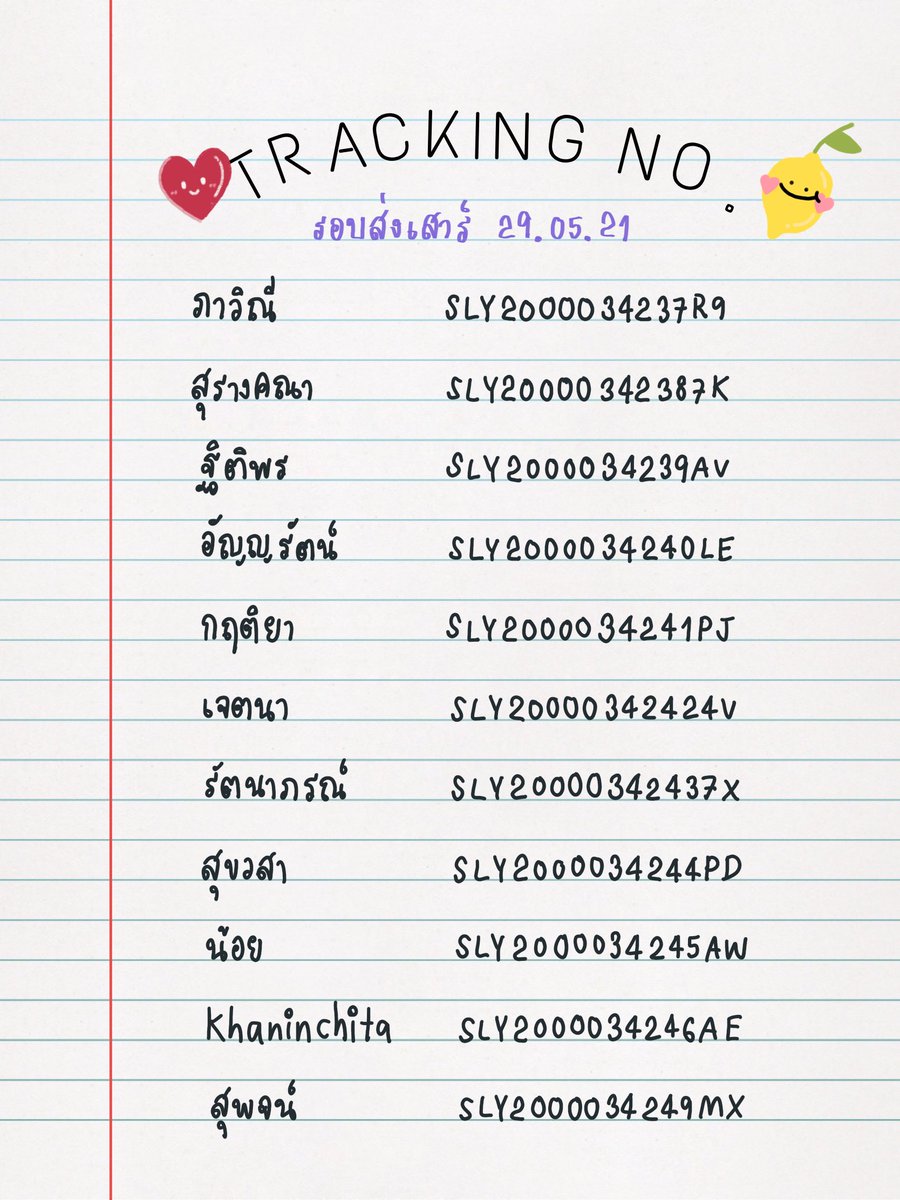 TRACKING NO.
รอบส่งเสาร์ 29.05.21
ภาวิณี SLY2000034237R9
สุรางคณา SLY20000342387K
ฐิติพร SLY2000034239AV
อัญญรัตน์ SLY2000034240LE
กฤติยา SLY2000034241PJ
เจตนา SLY20000342424V
รัตนาภรณ์ SLY20000342437X
สุขวสา SLY2000034244PD
น้อย SLY2000034245AW
Khaninchita SLY2000034246AE
สุพจน์ SLY2000034249MX